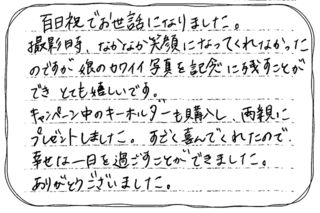 百日祝でお世話になりました。
撮影時、なかなか笑顔になってくれなかった
のですが娘のカワイイ写真を記念に残すことが
でき とても嬉しいです。
キャンペーン中のキーホルダーも購入し、両親に
プレゼントしました。すごく喜んでくれたので
幸せな一日を過ごすことができました。
ありがとうございました。